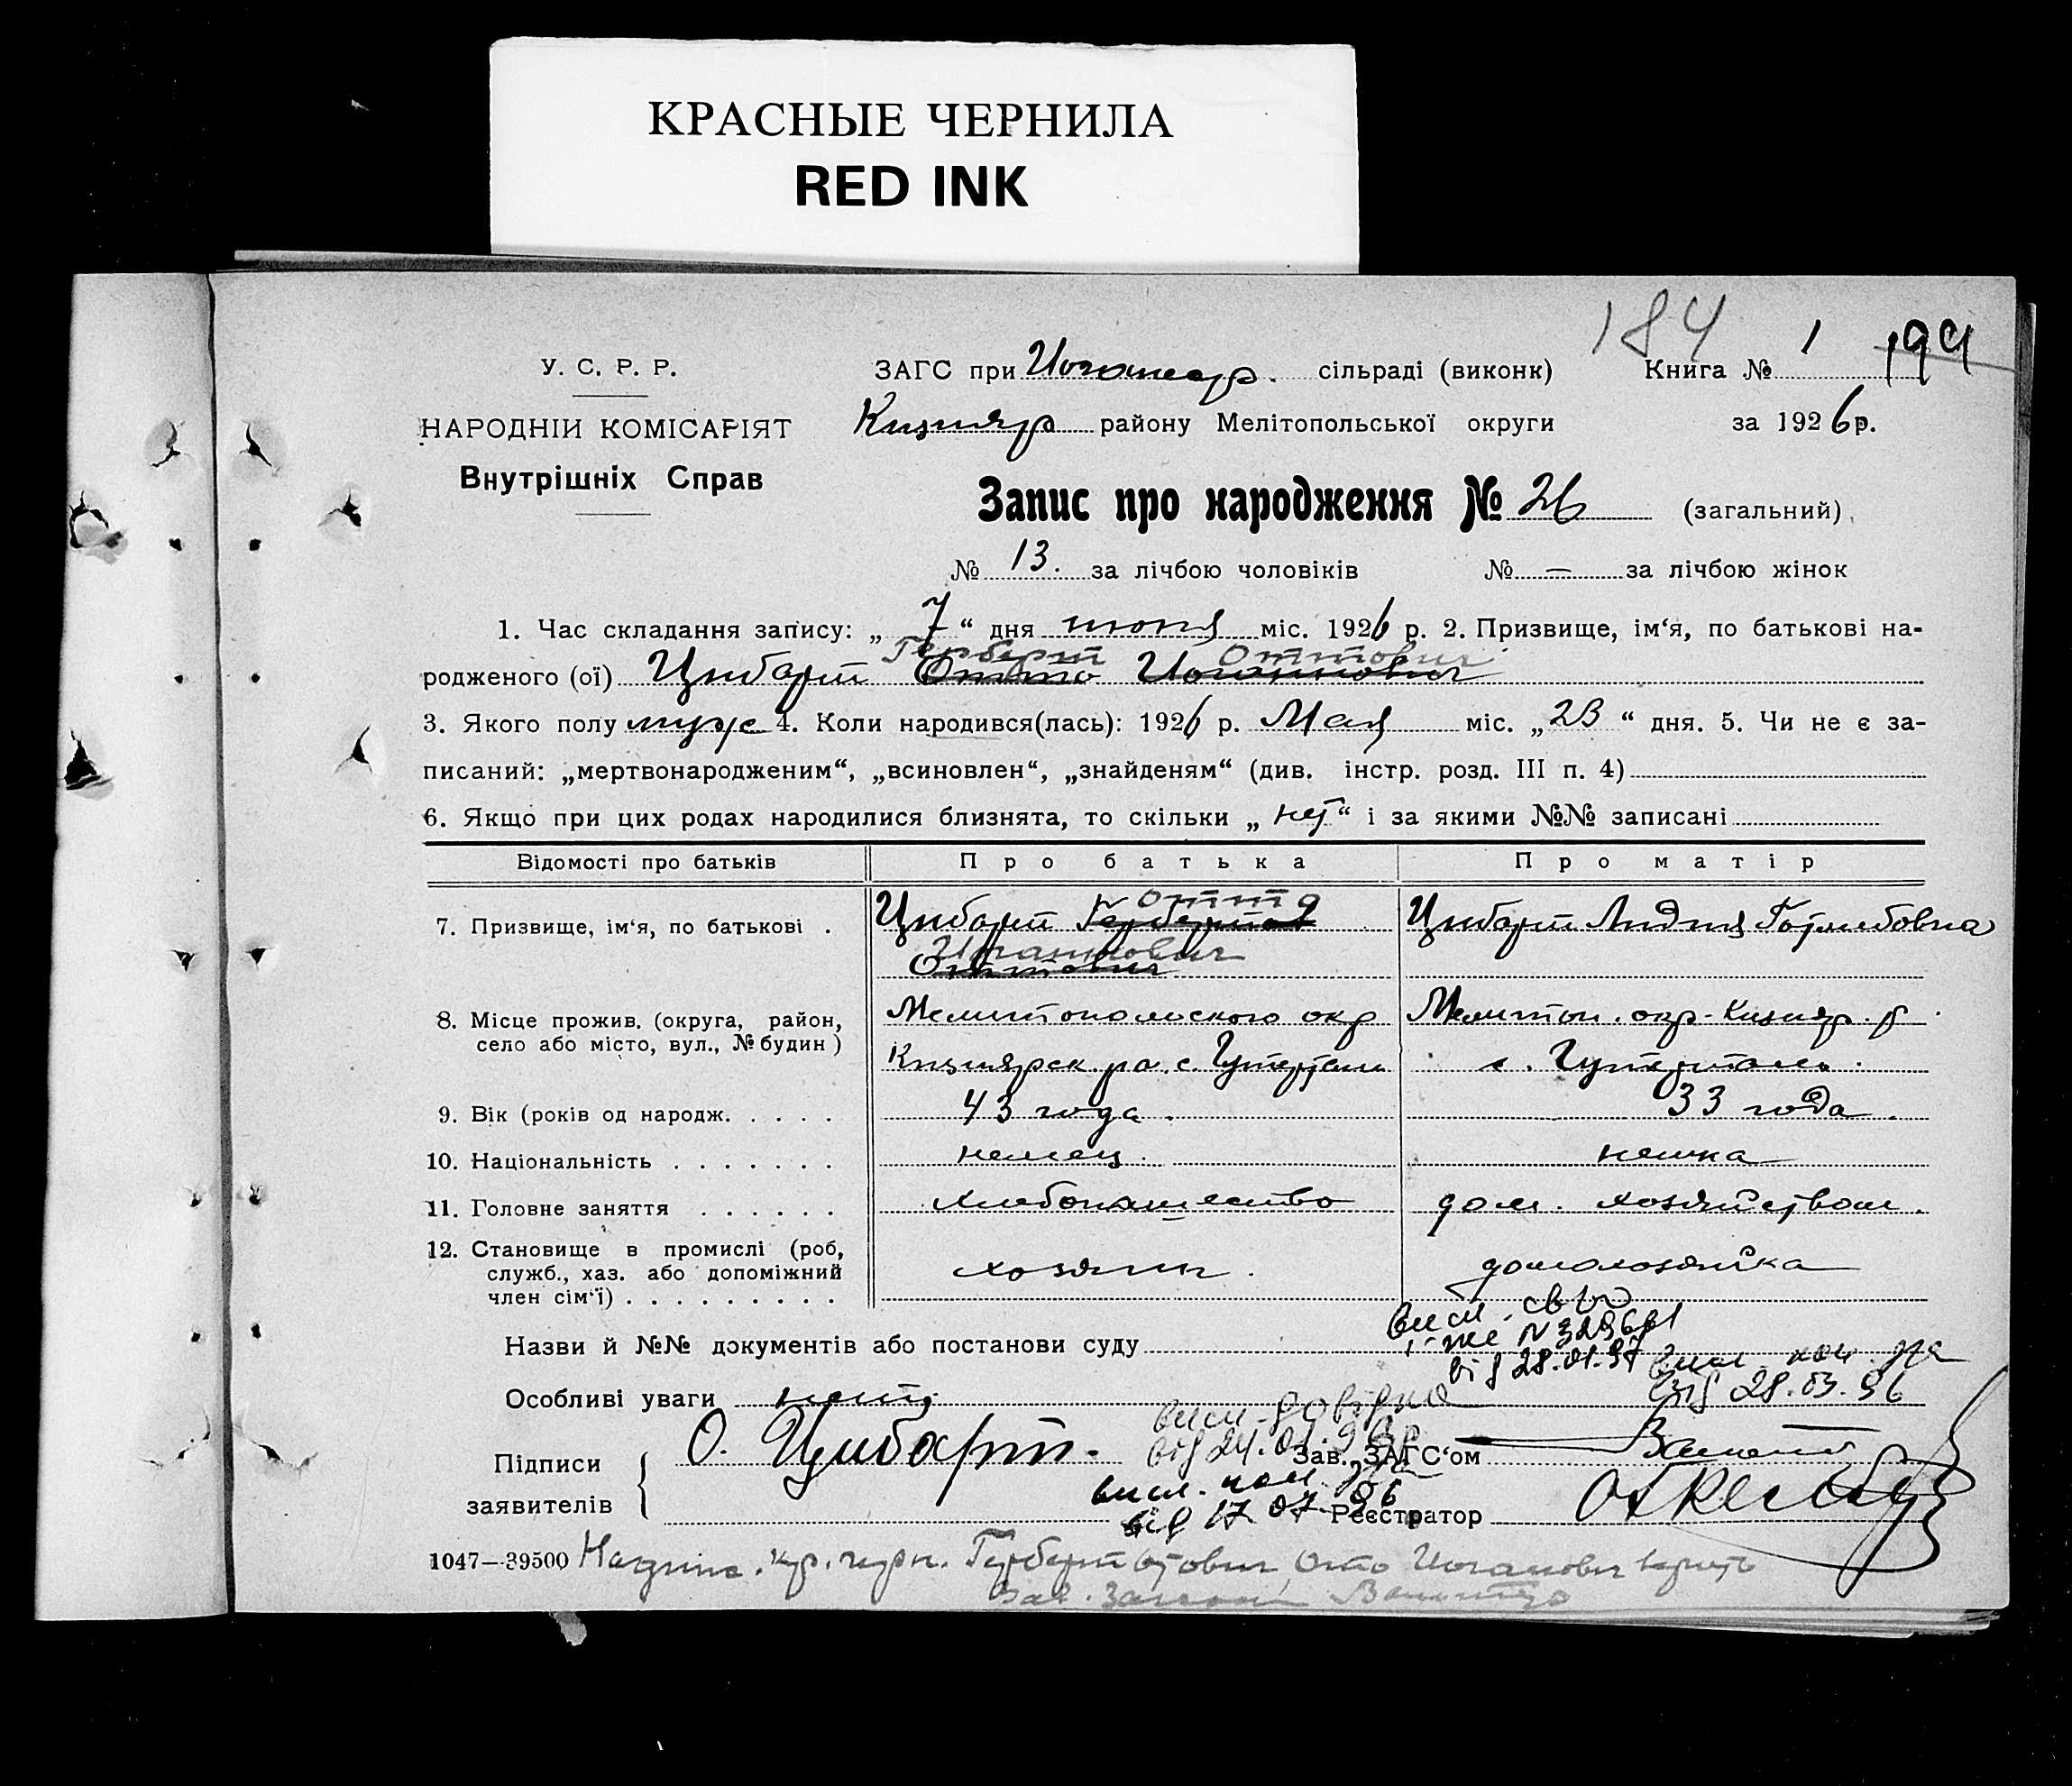 КРАСНЫЕ ЧЕРНИЛА
RED INK
184
У. С. Р. Р.
ЗАГС при сільраді (виконк) Книга № 1 194
НАРОДНІЙ КОМІСАРІЯТ
Кизияр району Мелітопольської округи за 1926 р.
Внутрішніх Справ
Запис про народження № 26 (загальний)
№ 13. за лічбою чоловіків № — за лічбою жінок
1. Час складання запису: „ 7 “ дня июня міс. 1926 р. 2. Призвище, ім‘я, по батькові на-
Герберт Оттович
родженого (ої) Цибарт Отто Иоганнович
3. Якого полу муж 4. Коли народився(лась): 1926 р. Мая міс. „ 23 “ дня. 5. Чи не є за-
писаний: „мертвонародженим“, „всиновлен“, „знайденям“ (див. інстр. розд. III п. 4)
6. Якщо при цих родах народилися близнята, то скільки „ нет “ і за якими №№ записані
Відомості про батьків Про батька Про матір
Отто
7. Призвище, ім‘я, по батькові . Цибарт Цибарт Лидия Готлибовна
Иоганнович
Оттович
8. Місце прожив. (округа, район, Мелитопольского окр Мелитоп. окр. Кизияр. р.
село або місто, вул., № будин) Кизиярск. ра. с.
9. Вік (років од народж. . . . . 43 года. 33 года.
10. Національність . . . . . . . немец. немка
11. Головне заняття . . . . . . хлебопашество дом. хозяйством.
12. Становище в промислі (роб, хозяин. домохозяйка
служб., хаз. або допоміжний
член сім‘ї) . . . . . . . . .
вид 28.01.97
Назви й №№ документів або постанови суду
від 28.03.96
Особливі уваги нет
довідка
від 24.01.96
О. Цибарт. Зав. ЗАГС‘ом
Підписи
заявителів
від 17 07 96 Реєстратор
1047—39500 Герберт Отович, Отто Иоганович